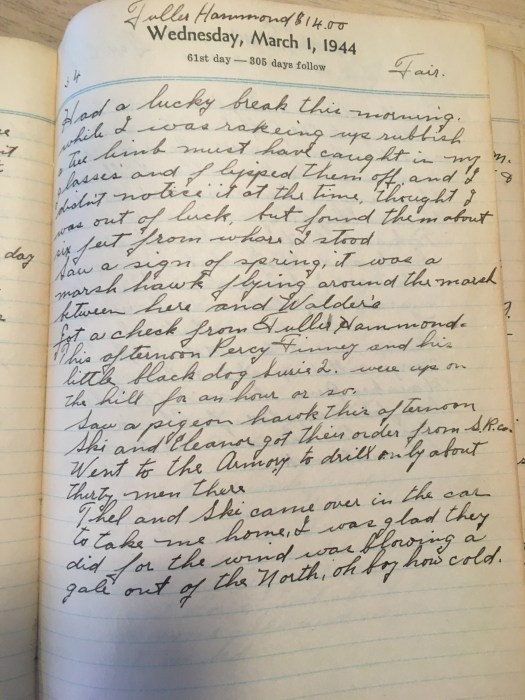 Fuller Hammond $14.00
Wednesday, March 1, 1944
61st day — 305 days follow
34
Fair.
Had a lucky break this morning.
while I was rakeing up rubbish
a tree limb must have caught in my
glasses and flipped them off and I
didn't notice it at the time, thought I
was out of luck, but found them about
six feet from whare I stood
Saw a sign of spring, it was a
marsh hawk flying around the marsh
between here and Walder's
Got a check from Fuller Hammond.
This afternoon Percy Finney and his
little black dog Susie 2. were up on
the hill for an hour or so.
Saw a pigeon hawk this afternoon
Ski and Eleanor got their order from S.R.co.
Went to the Armory to drill only about
thirty men there
Thel and Ski came over in the car
to take me home, I was glad they
did for the wind was blowing a
gale out of the North, oh boy how cold.
day